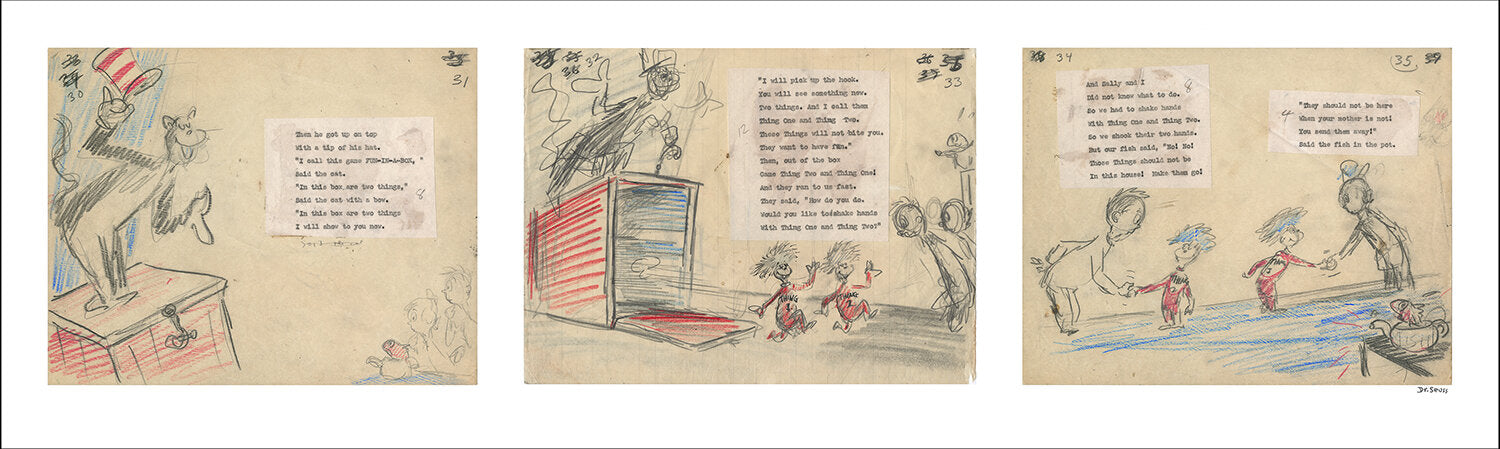 30
31
Then he got up on top
With a tip of his hat.
"I call this game FUN-IN-A-BOX, "
Said the cat.
"In this box are two things,"
Said the cat with a bow.
"In this box are two things
I will show to you now.
8
32
33
"I will pick up the hook.
You will see something new.
Two things. And I call them
Thing One and Thing Two.
These Things will not bite you.
They want to have fun."
Then, out of the box
Came Thing Two and Thing One!
And they ran to us fast.
They said, "How do you do.
Would you like to shake hands
With Thing One and Thing Two?"
12
THING
THING
34
35
And Sally and I
Did not know what to do.
So we had to shake hands
With Thing One and Thing Two.
So we shook their two hands.
But our fish said, "No! No!
Those Things should not be
In this house! Make them go!
8
"They should not be here
When your mother is not!
You send them away!"
Said the fish in the pot.
4
THING
THING
Dr. Seuss